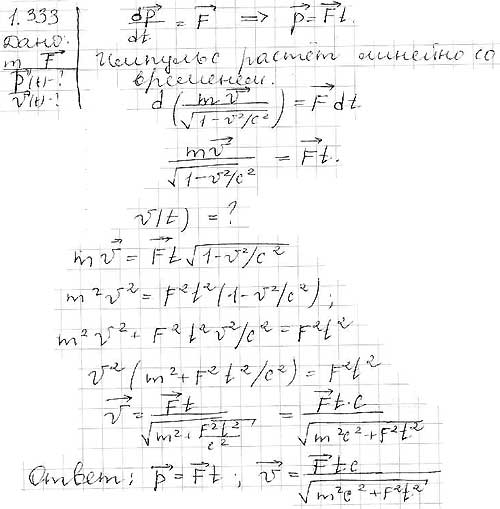 1.333
Дано:
m \vec{F}
\vec{p}(t)-?
\vec{v}(t)-?
\frac{d\vec{p}}{dt} = \vec{F} => \vec{p} = \vec{F}t.
Импульс растёт линейно со
временем.
d(\frac{m\vec{v}}{\sqrt{1-v²/c²}}) = \vec{F}dt
\frac{m\vec{v}}{\sqrt{1-v²/c²}} = \vec{F}t.
v(t) = ?
m\vec{v} = \vec{F}t\sqrt{1-v²/c²}
m²v² = F²t²(1-v²/c²);
m²v² + F²t²v²/c² = F²t²
v²(m² + F²t²/c²) = F²t²
\vec{v} = \frac{\vec{F}t}{\sqrt{m² + \frac{F²t²}{c²}}} = \frac{\vec{F}t·c}{\sqrt{m²c² + F²t²}}
Ответ: \vec{p} = \vec{F}t; \vec{v} = \frac{\vec{F}tc}{\sqrt{m²c² + F²t²}}